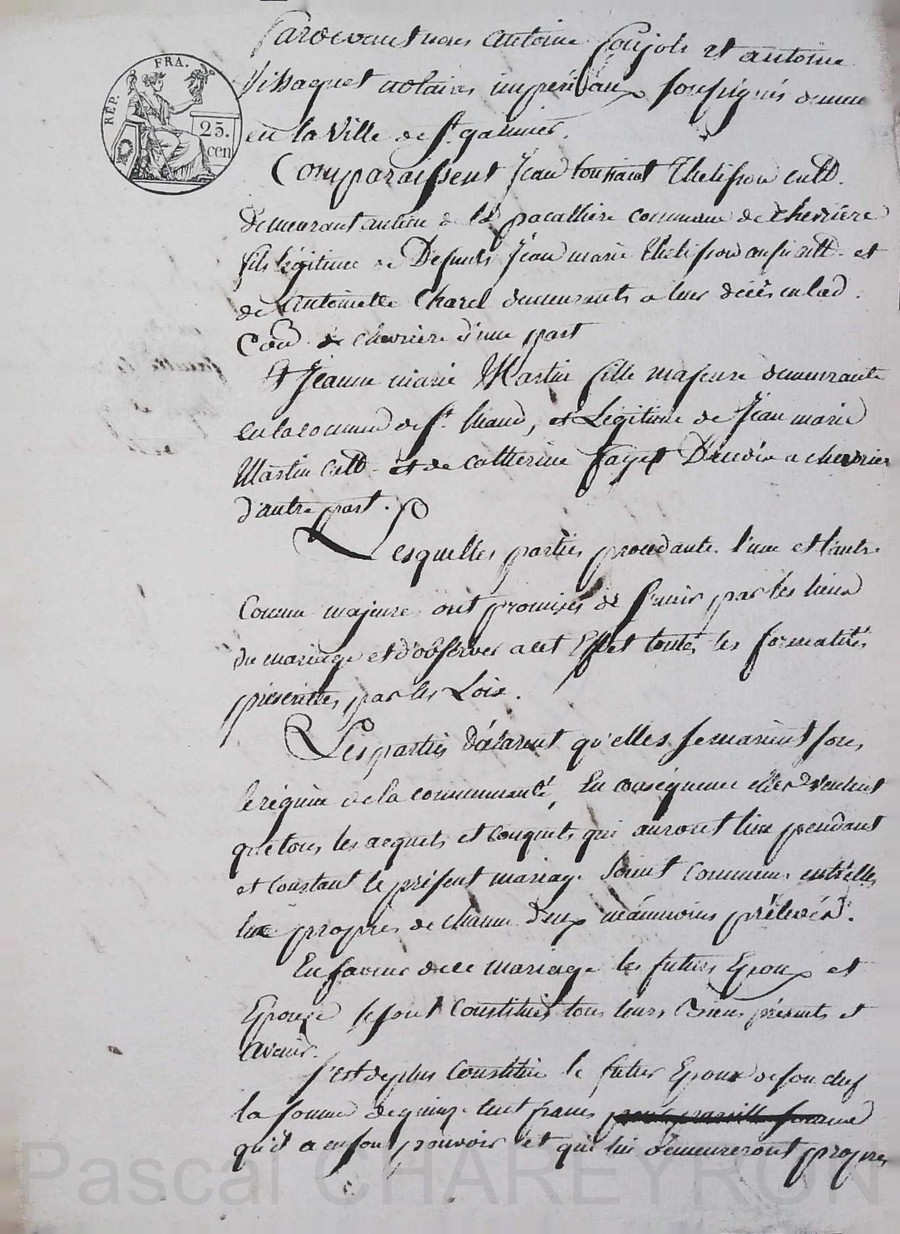 RÉP. FRA.
25.
cen
Pardevant nous antoine Poujols et antoine
Vissaguet notaires impériaux soussignés demeu
en la Ville de St. galmier.
Comparaissent Jean toussaint Thelisson cult.
demeurant au lieu de la pacalliere commune de chevriere
fils légitime de Defunts Jean marie Thelisson aussi cult. et
de antoinette Charel demeurants a leur décès en lad.
Com. de chevriere d'une part
Et Jeanne marie Martin fille majeure demeurante
en la commune de St. Médard, et Légitime de Jean marie
Martin Cult. et de catherine Fayet à chevrier
d'autre part.
Lesquelles parties procédante l'une et l'autre
Comme majeure ont promises de s'unir par les liens
du mariage et d'observer a cet Effet toutes les formalités
prescrittes par les Loix.
Les parties déclarent qu'elles se marient sous
le régime de la communauté, En conséquence elles veulent
que tous les acquets et conquets qui auront lieu pendant
et constant le présent mariage soient communs entr'elles
les propres de chacun d'eux néanmoins prélevés.
En faveur de ce mariage les futurs Epoux et
Epouse se sont constitués tous leurs Biens présents et
avenir.
S'est de plus Constitué le futur Epoux de son chef
la somme de quinze cent francs
qu'il a en son pouvoir et qui lui demeureront propres
Pascal CHAREYRON